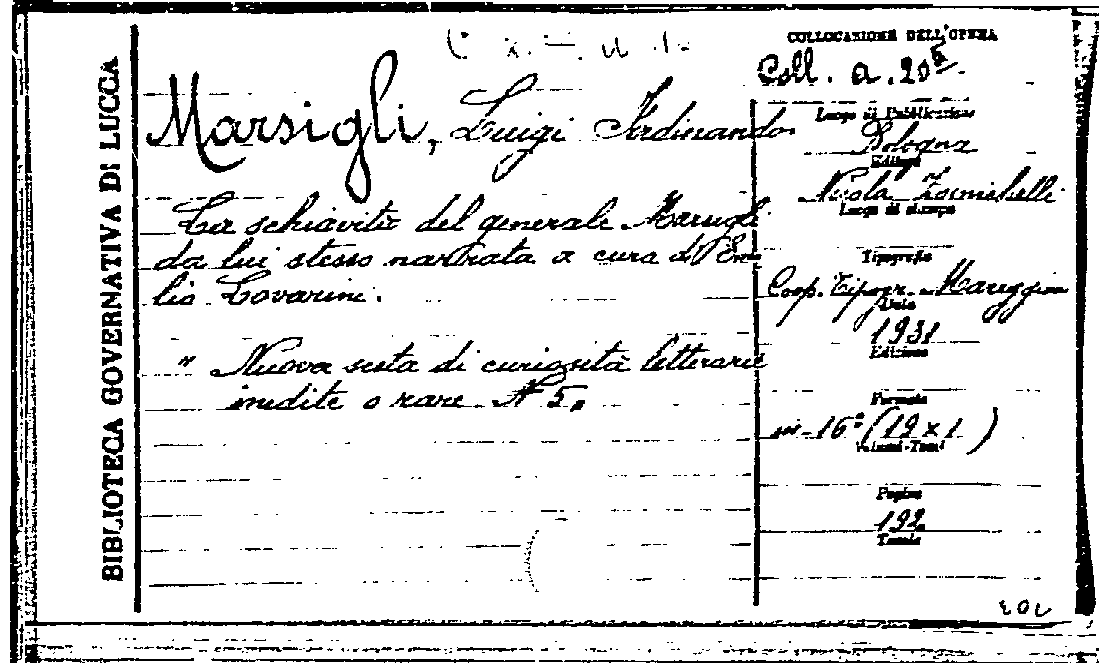 BIBLIOTECA GOVERNATIVA DI LUCCA
COLLOCAZIONE DELL'OPERA
Coll. a. 205
Marsigli, Luigi Ferdinando
Luogo di Pubblicazione
Bologna
Editore
Nicola Zanichelli
Luogo di stampa
La schiavitù del generale Marsigli
da lui stesso narrata a cura di Emi
lio Lovarini.
Tipografia
Coop. Tipogr. Mareggiani
Data
1931
Edizione
" Nuova scelta di curiosità letterarie
inedite o rare N 5"
Formato
in-16° (19 x 1 )
Volumi-Tomi
Pagine
192
Tavole